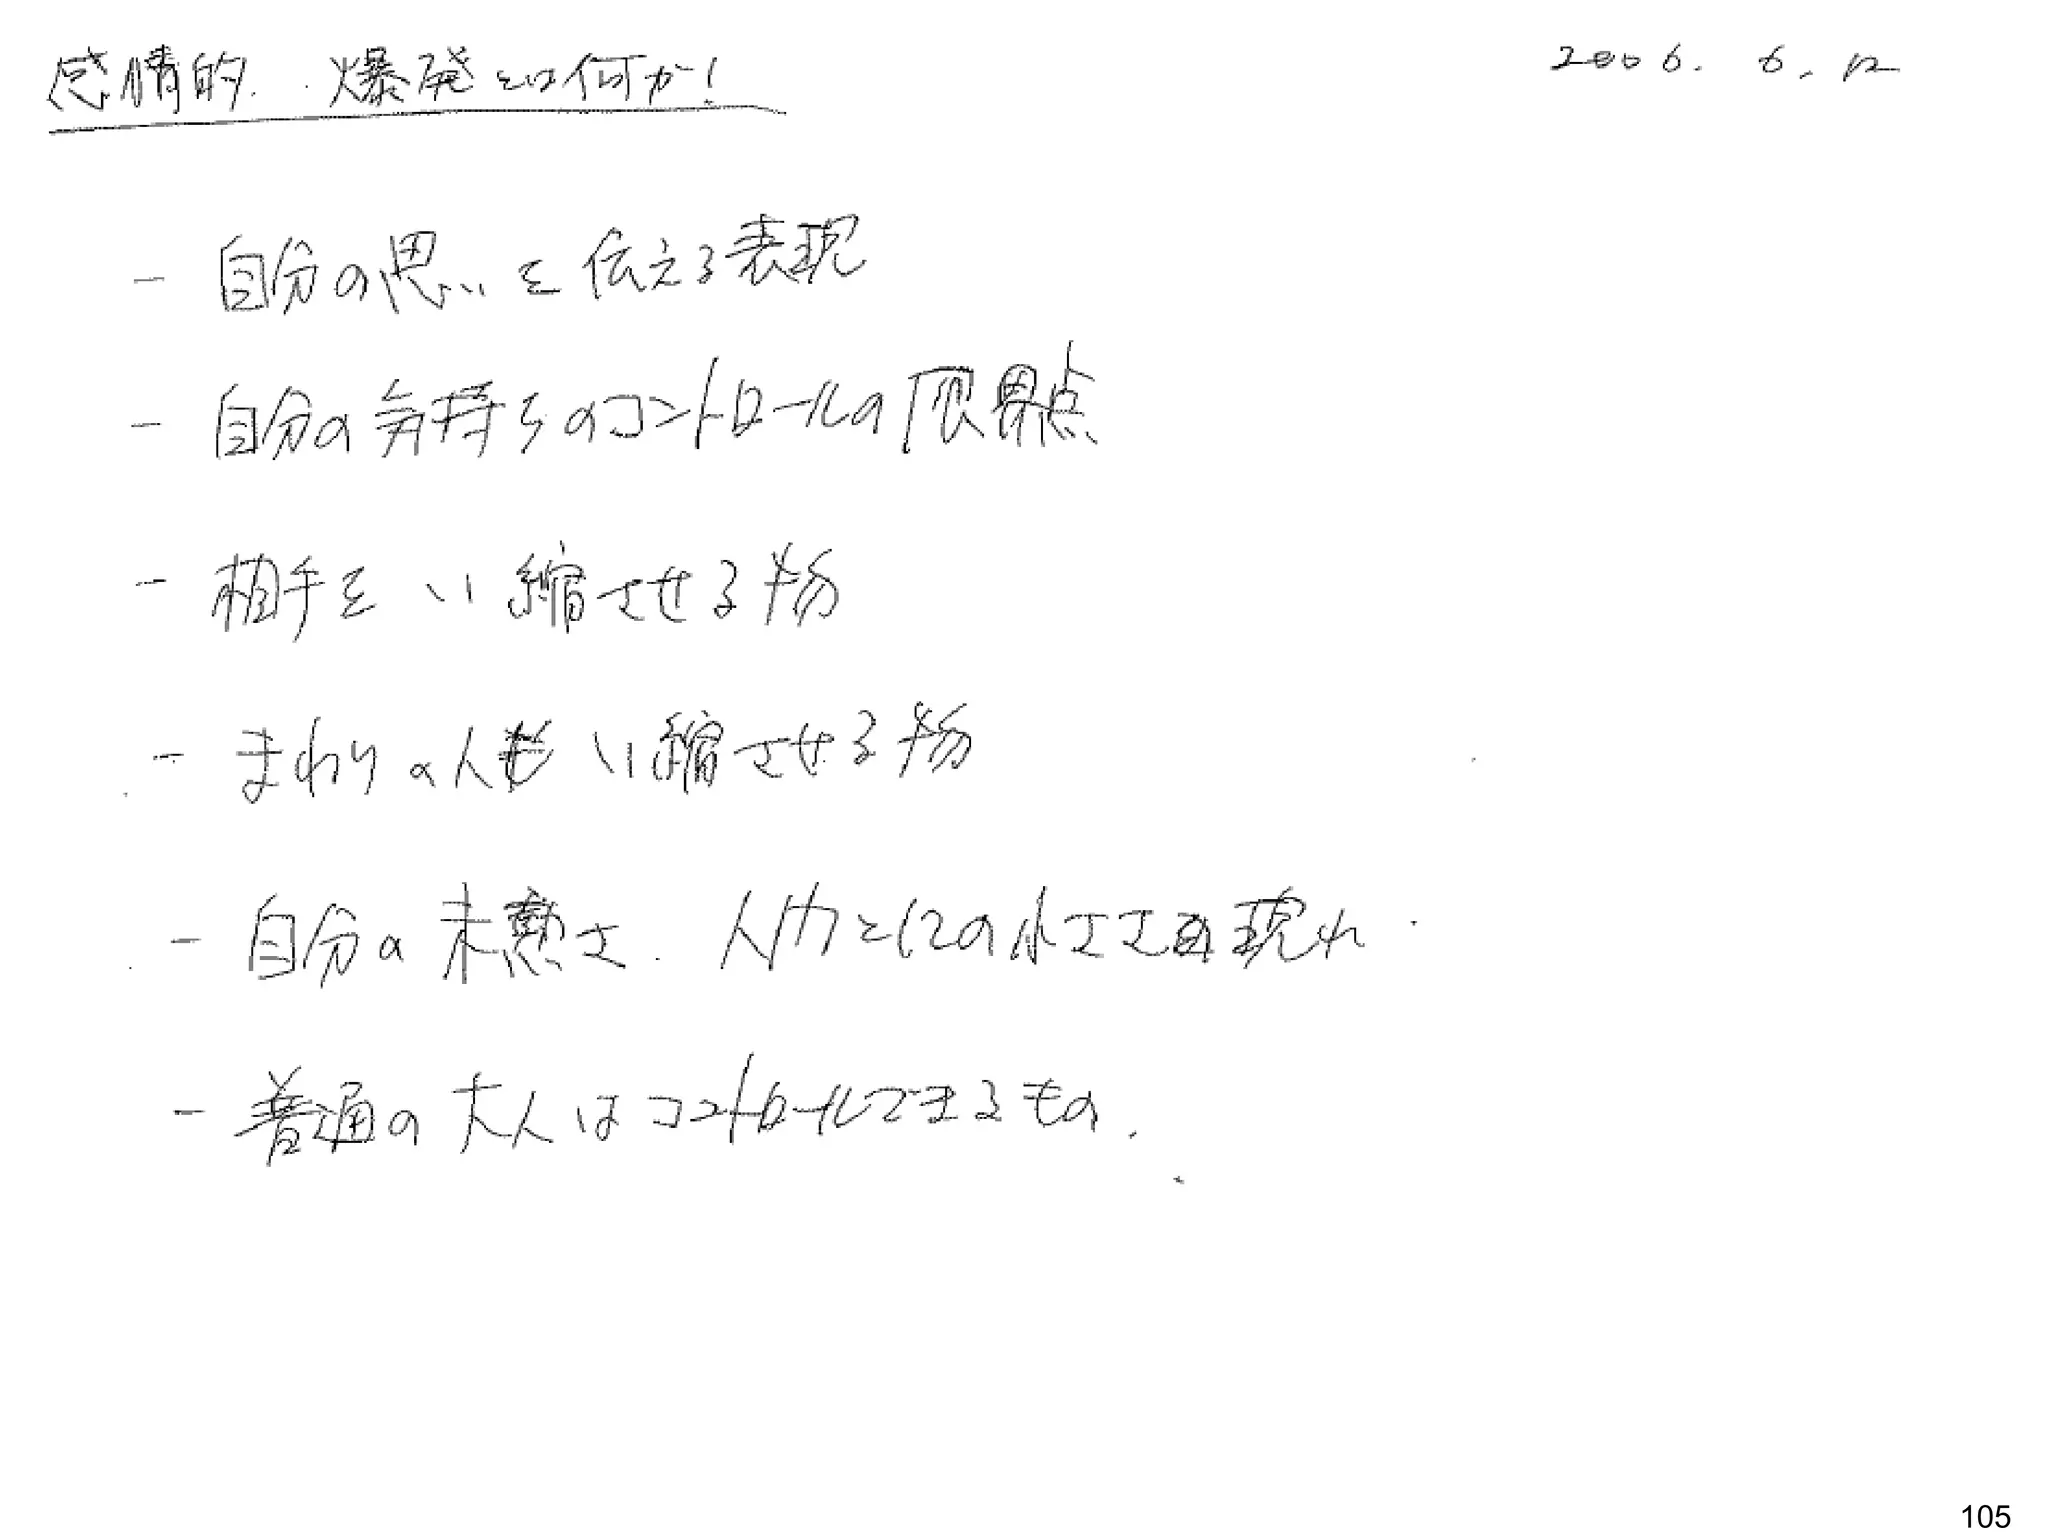 感情的爆発とは何か! 2006. 6. 12
- 自分の思いを伝える表現
- 自分の気持ちのコントロールの限界点
- 相手をい縮させる物
- まわりの人もい縮させる物
- 自分の未熟さ. 人としての小ささの現れ
- 普通の大人はコントロールできるもの.
105